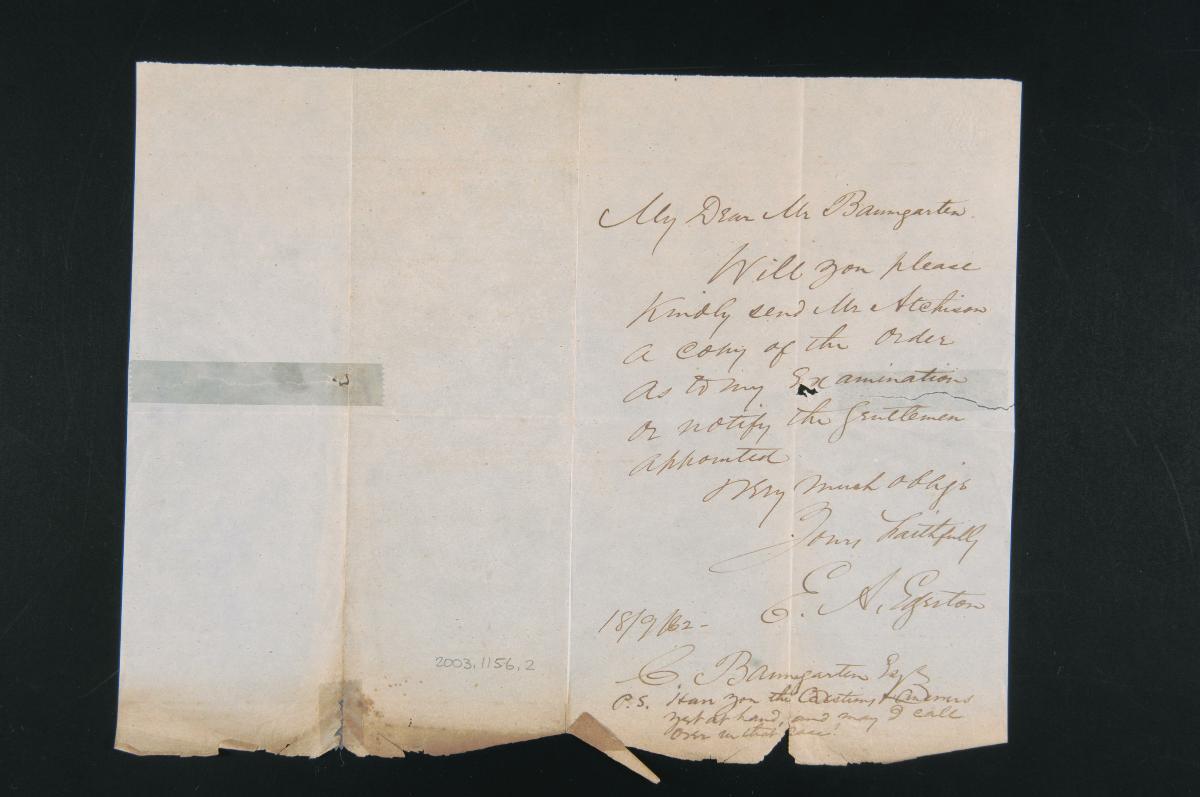 My Dear Mr Baumgarten.
Will you please
Kindly send Mr Atchison
a copy of the Order
as to my Examination
or notify the Gentlemen
appointed
very much oblige
Yours Faithfully
E. A. Egerton
18/9/62-
C Baumgarten Esq
P.S. Have you the Questions & Answers
yet at hand, and may I call
over in that Case.
2003.1156.2